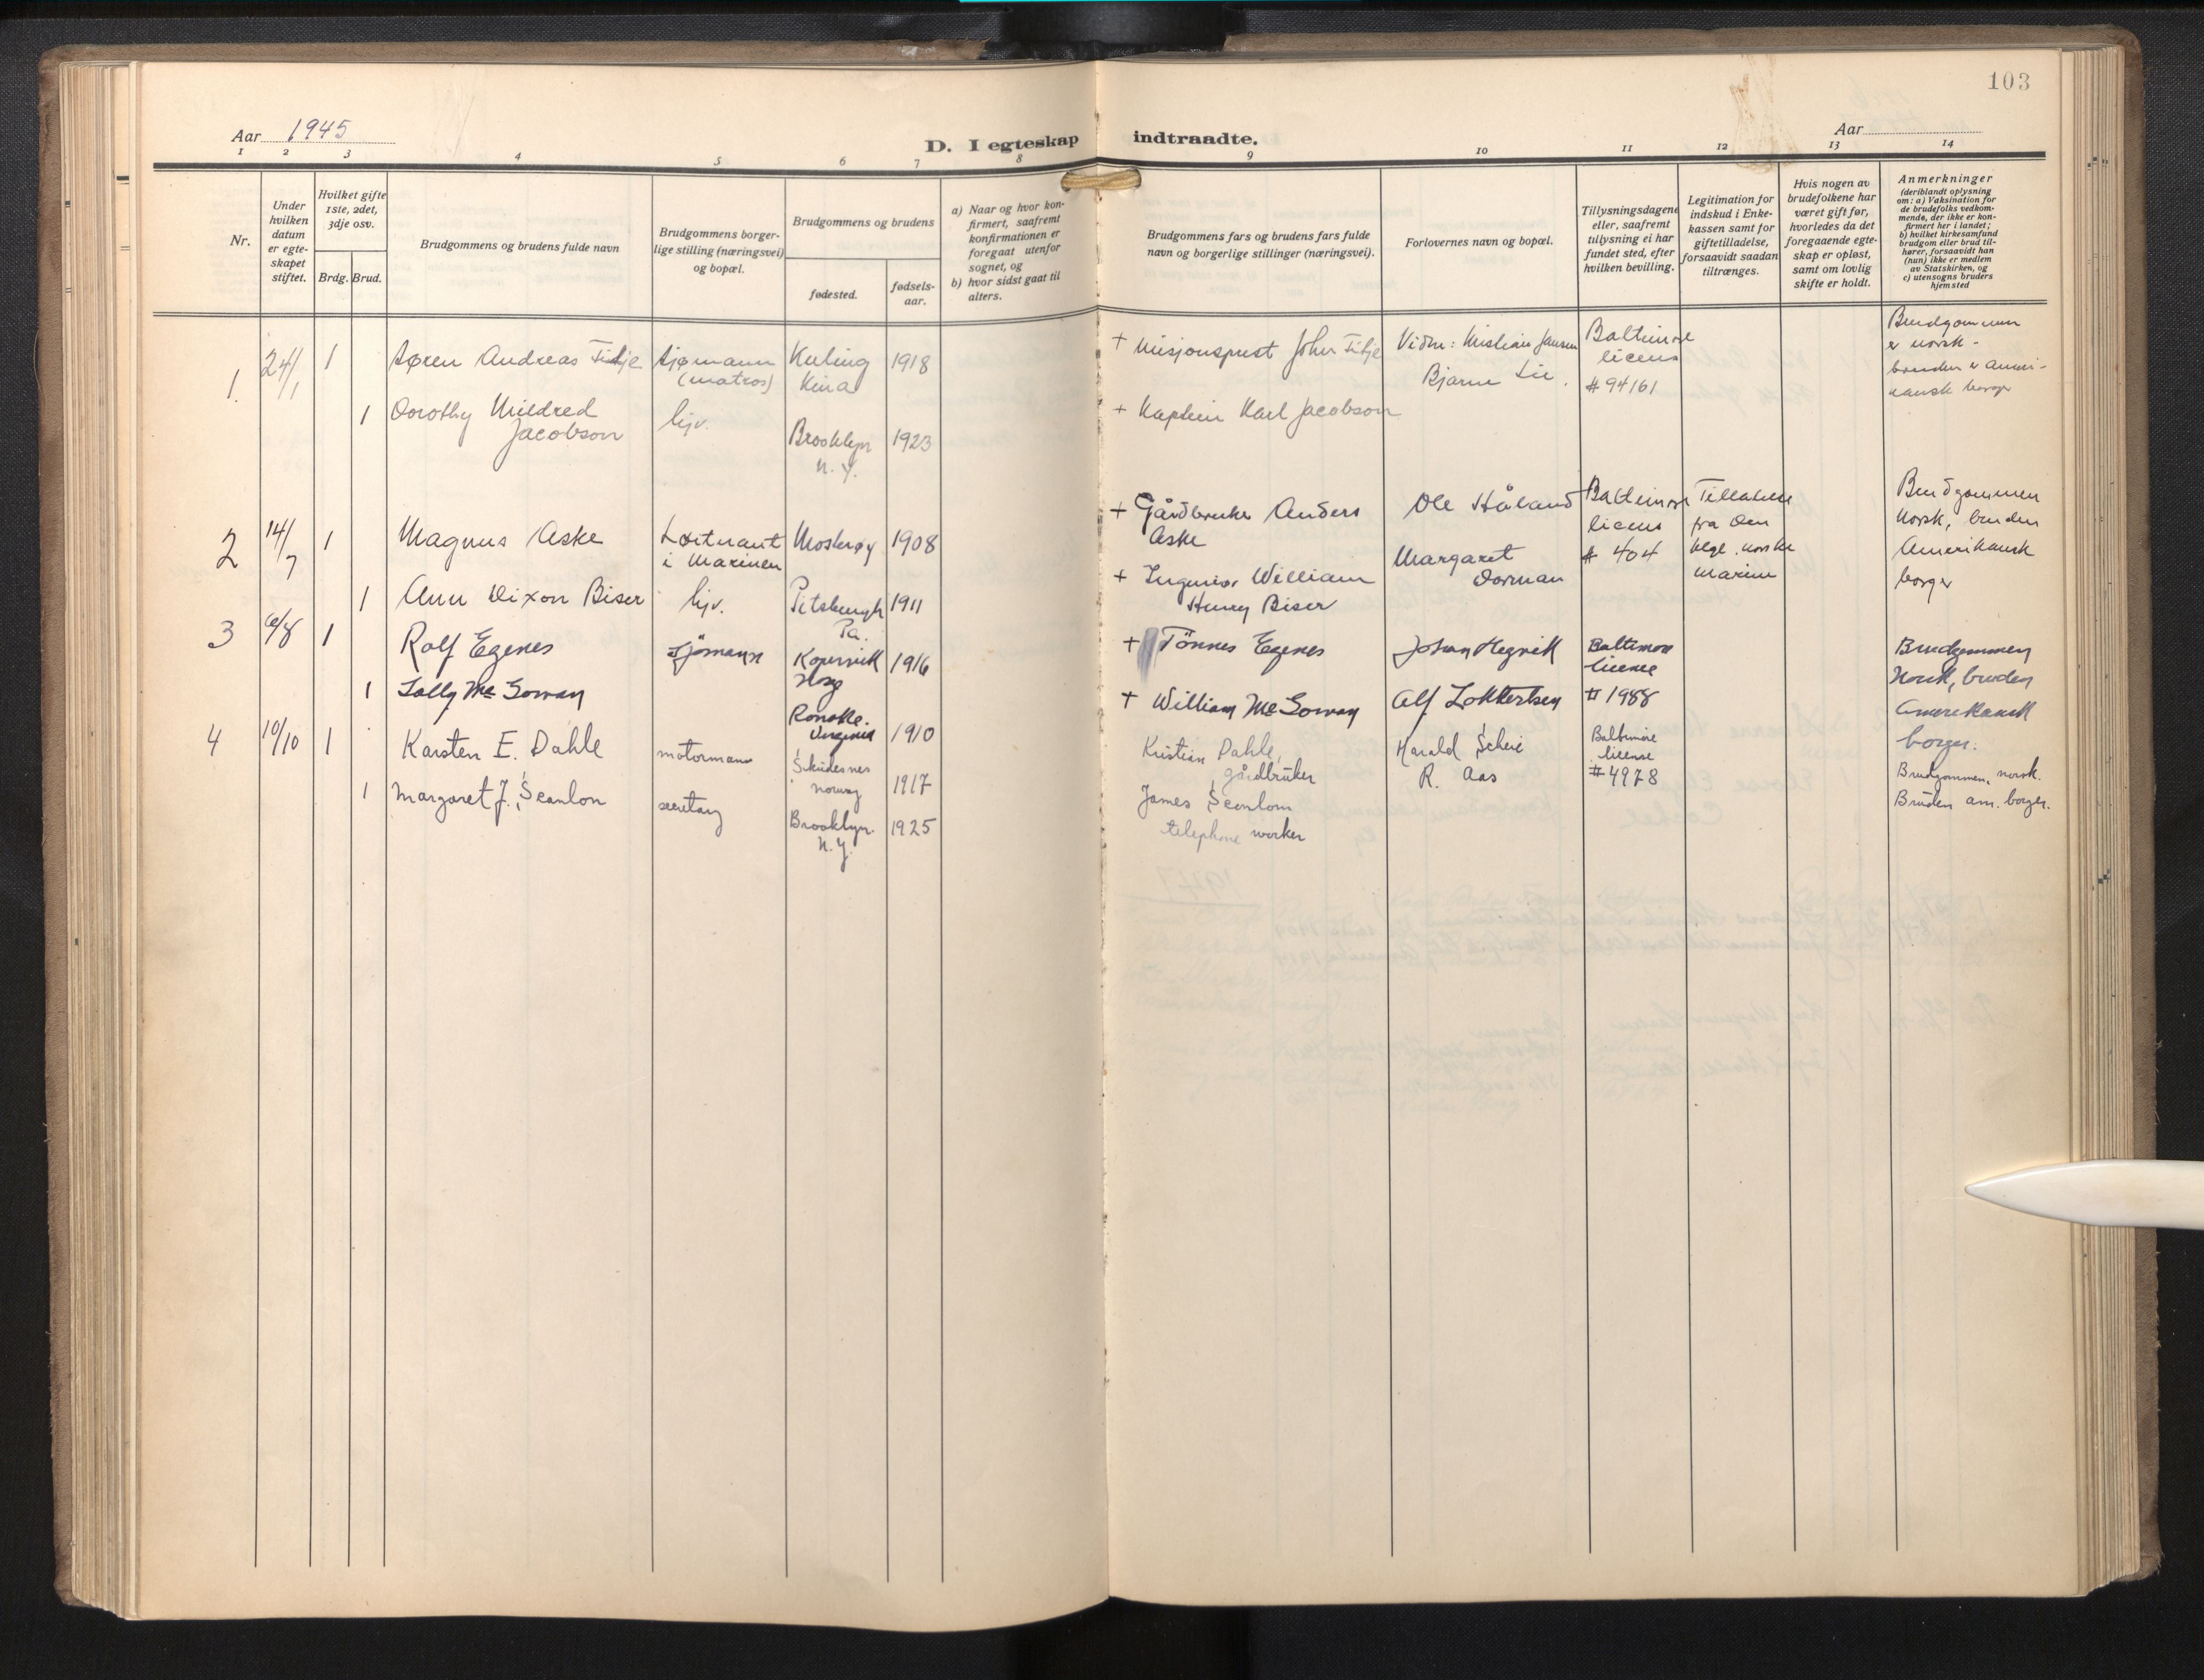 103
Aar 1945
D. I egteskap indtraadte.
Aar
1 2 3 4 5 6 7 8 9 10 11 12 13 14
Nr.
Under
hvilken
datum
er egte-
skapet
stiftet.
Hvilket gifte
1ste, 2det,
3dje osv.
Brdg. Brud.
Brudgommens og brudens fulde navn
Brudgommens borger-
lige stilling (næringsvei)
og bopæl.
Brudgommens og brudens
fødested.
fødsels-
aar.
a) Naar og hvor kon-
firmert, saafremt
konfirmationen er
foregaat utenfor
sognet, og
b) hvor sidst gaat til
alters.
Brudgommens fars og brudens fars fulde
navn og borgerlige stillinger (næringsvei).
Forlovernes navn og bopæl.
Tillysningsdagene
eller, saafremt
tillysning ei har
fundet sted, efter
hvilken bevilling.
Legitimation for
indskud i Enke-
kassen samt for
giftetilladelse,
forsaavidt saadan
tiltrænges.
Hvis nogen av
brudefolkene har
været gift før,
hvorledes da det
foregaaende egte-
skap er opløst,
samt om lovlig
skifte er holdt.
Anmerkninger
(deriblandt oplysning
om: a) Vaksination for
de brudefolks vedkom-
mende, der ikke er kon-
firmert her i landet;
b) hvilket kirkesamfund
brudgom eller brud til-
hører, forsaavidt han
(hun) ikke er medlem
av Statskirken, og
c) utensogns bruders
hjemsted
1. 24/1 1
Søren Andreas Tilje
sjømann
(matros)
Kuling
Kina
1918
+ Misjonsprest John Tilje
Vidn: Kristian Jansen
Bjarne Lie.
Baltimore
licens
# 94161
Brudgommen
er norsk -
bruden er ameri-
kansk borger
1
Dorothy Mildred
Jacobson
hjv.
Brooklyn
N.Y.
1923
+ Kaptein Karl Jacobson
2 14/7 1
Magnus Aske
Løitnant
i Marinen
Mosterøy
1908
+ Gårdbruker Anders
Aske
Ole Håland
Margaret
Dorman
Baltimore
licens
# 404
fra den
kgl. norske
marine
Brudgommen
Norsk, bruden
Amerikansk
borger
1
Ann Dixon Biser
hjv.
Pitsburgh
Pa.
1911
+ Ingeniør William
Henry Biser
3 6/8 1
Rolf Egenes
sjömann
Kopervik
Norg
1916
+ Tönnes Egenes
Johan Hegvik
Baltimore
licence
# 1988
Brudgommen
Norsk, bruden
Amerekansk
borger.
1
Sally Mc Gowan
Ronoke.
Virginia
1910
+ William Mc Gowan
Alf Lokkertsen
4 10/10 1
Karsten E. Dahle
motormann
Skudesnes
Norway
1917
Kristian Dahle,
gårdbruker
Harald Scheie
R. Aas
Baltimore
license
# 4978
Brudgommen, norsk.
Bruden am. borger.
1
Margaret J. Scanlon
secretary
Brooklyn.
N.Y.
1925
James Scanlon
telephone worker